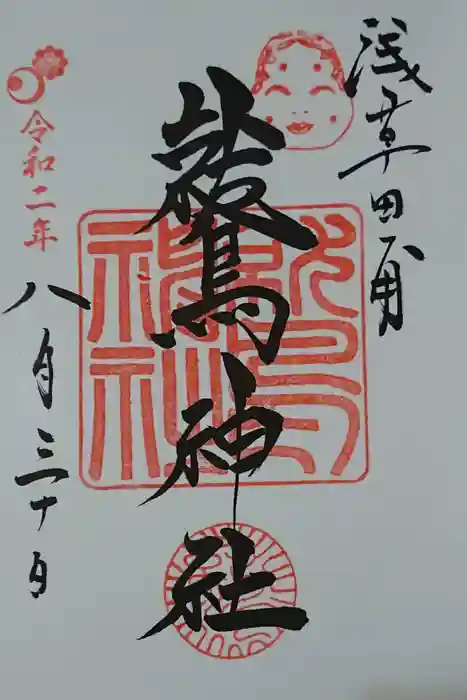 浅草田甫
鷲神社
令和二年
八月三十日
鷲神社